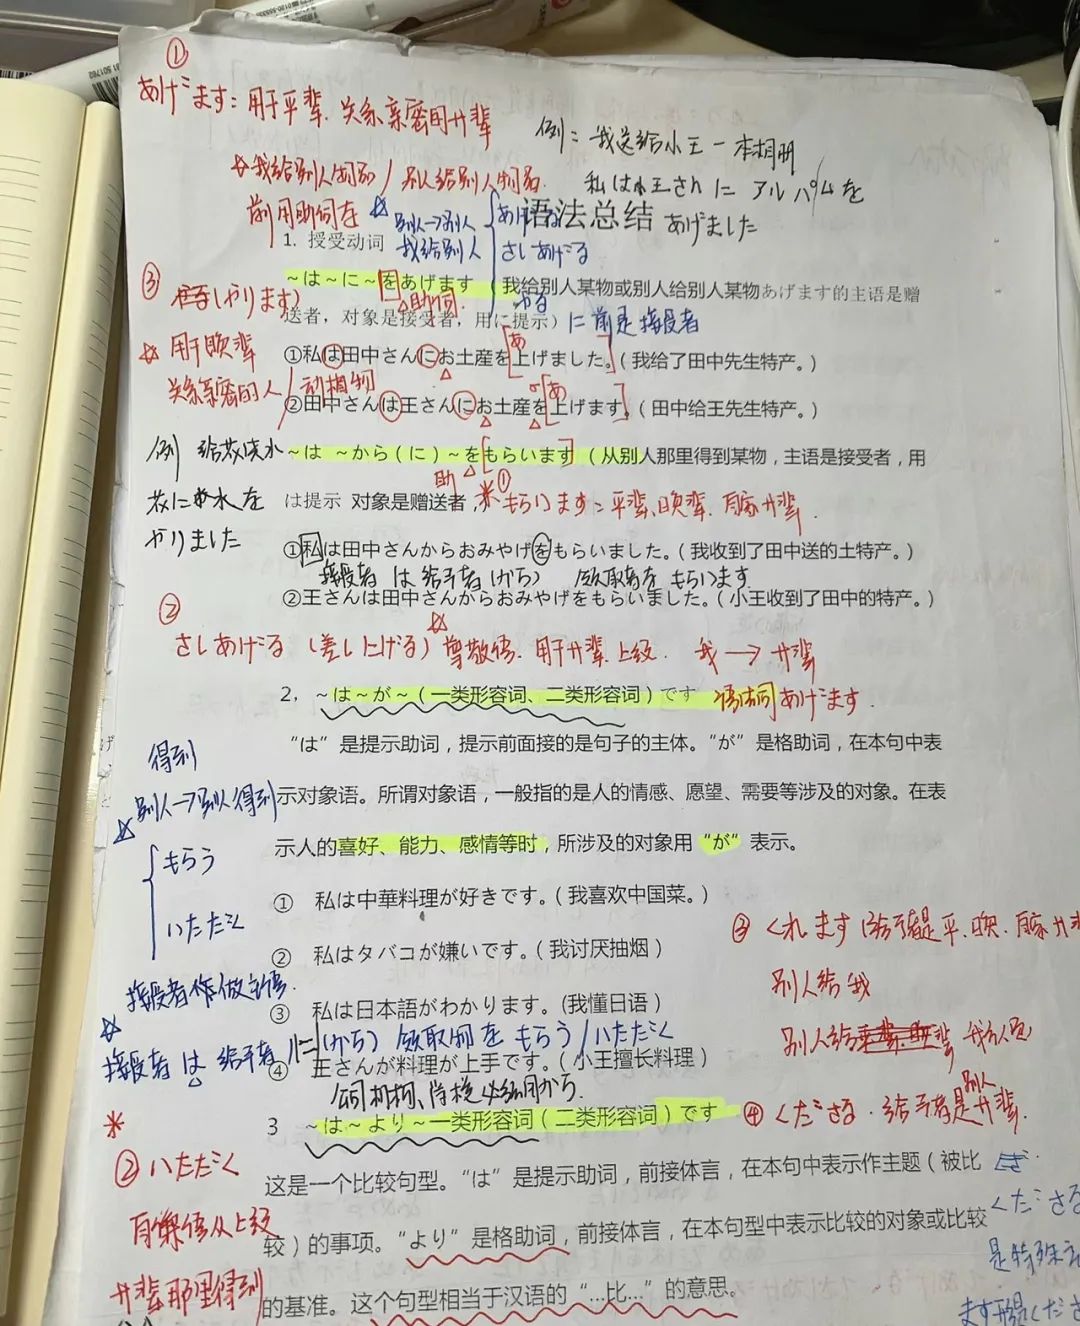 ①
あげます：用于平辈.关系亲密的升辈
例：我送给小王一本相册
☆我给别人物品/别人给别人物品.
私は小王さんに アルバムを
あげました
前用助词を
别人→别人
我给别人
あげる
さしあげる
やる
语法总结
1. 授受动词
③
(やります)
～は～に～をあげます （我给别人某物或别人给别人某物あげます的主语是赠
助词.
送者，对象是接受者，用に提示） に前是接受者
☆ 用于晚辈
关系亲密的人/动植物
①私は田中さんにお土産を上げました。（我给了田中先生特产。）
あ
②田中さんは王さんにお土産を上げます。（田中给王先生特产。）
あ
例 给花浇水
花に水を
やりました
～は ～から（に）～をもらいます （从别人那里得到某物，主语是接受者，用
助
は提示 对象是赠送者，
※① もらいます：平辈、晚辈.
①私は田中さんからおみやげをもらいました。（我收到了田中送的土特产。）
接受者 は 给予者(から) 领取物を もらいます
②王さんは田中さんからおみやげをもらいました。（小王收到了田中的特产。）
②
さしあげる（差し上げる）尊敬语.用于升辈.上级. 我→升辈
2，～は～が～（一类形容词、二类形容词）です
あげます.
“は”是提示助词，提示前面接的是句子的主体。“が”是格助词，在本句中表
示对象语。所谓对象语，一般指的是人的情感、愿望、需要等涉及的对象。在表
示人的喜好、能力、感情等时，所涉及的对象用“が”表示。
得到
别人→别人得到
☆
もらう
いただく
接受者作做主语.
① 私は中華料理が好きです。（我喜欢中国菜。）
② 私はタバコが嫌いです。（我讨厌抽烟）
③ 私は日本語がわかります。(我懂日语）
☆
接受者 は 给予者 に(から) 领取物を もらう/いただく
④ 王さんが料理が上手です。（小王擅长料理）
公司机构、学校必须用から.
③ くれます
别人给我
④ くださる.给予者是别人升辈.
3 ～は～より～一类形容词（二类形容词）です
这是一个比较句型。“は”是提示助词，前接体言，在本句中表示作主题（被比
较）的事项。“より”是格助词，前接体言，在本句型中表示比较的对象或比较
的基准。这个句型相当于汉语的“…比…”的意思。
※
② いただく
自谦语从上级
升辈那里得到
くださる
是特殊
ます形是くださ